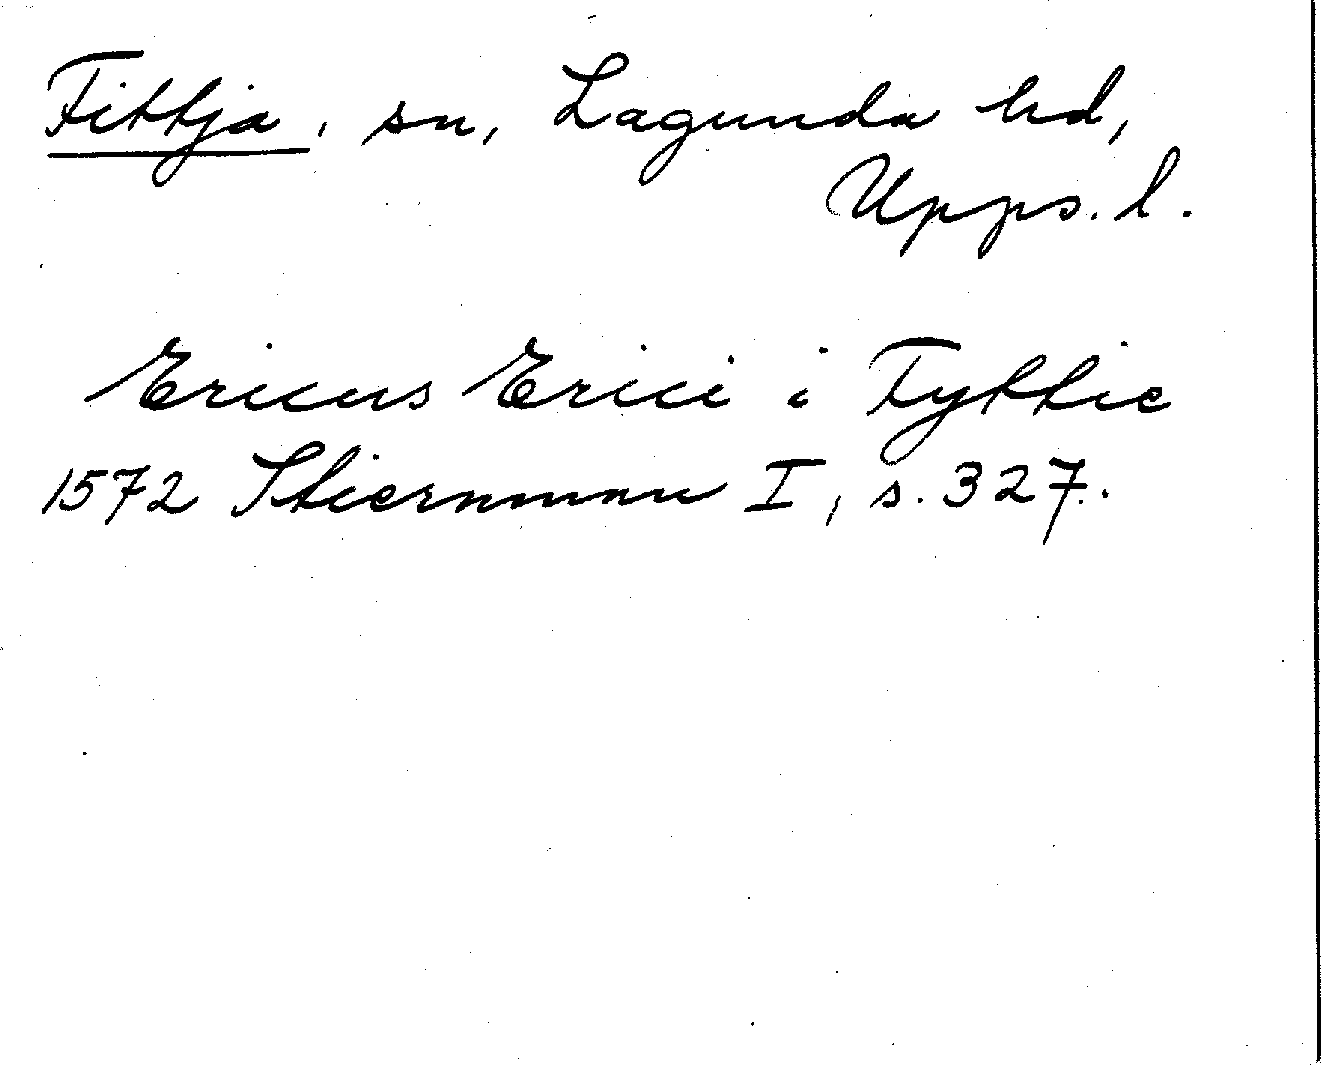 Fittja, sn, Lagunda hd,
Upps. l.
Ericus Erici i Fyttie
1572 Stiernman I, s. 327.